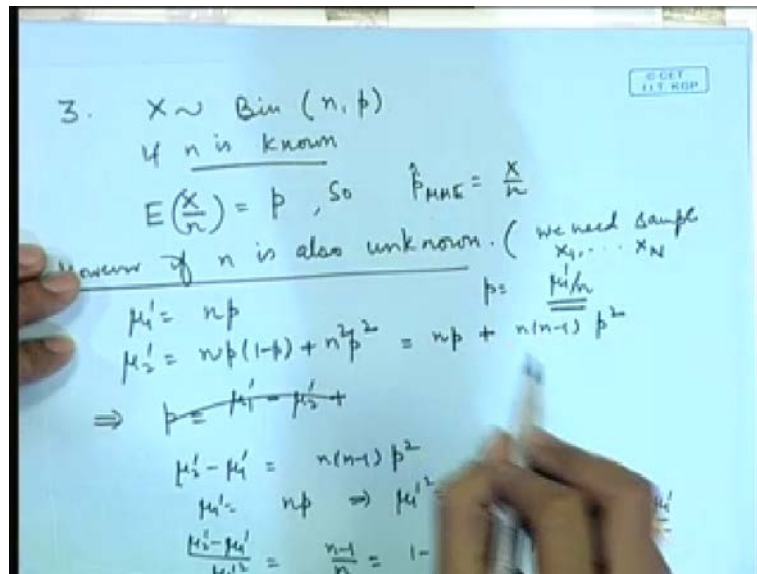 © CET
I.I.T. KGP
3. X ~ Bin (n, p)
If n is known
E(X/n) = p, So p̂_MME = X/n
However if n is also unknown. (we need sample
X₁, ... X_N
p = μ₁'/n
μ₁' = np
μ₂' = np(1-p) + n²p² = np + n(n-1) p²
⇒ p = μ₁' - μ₂' +
μ₂' - μ₁' = n(n-1) p²
μ₁' = np ⇒ μ₁'² =
(μ₂' - μ₁')/μ₁'² = (n-1)/n = 1-